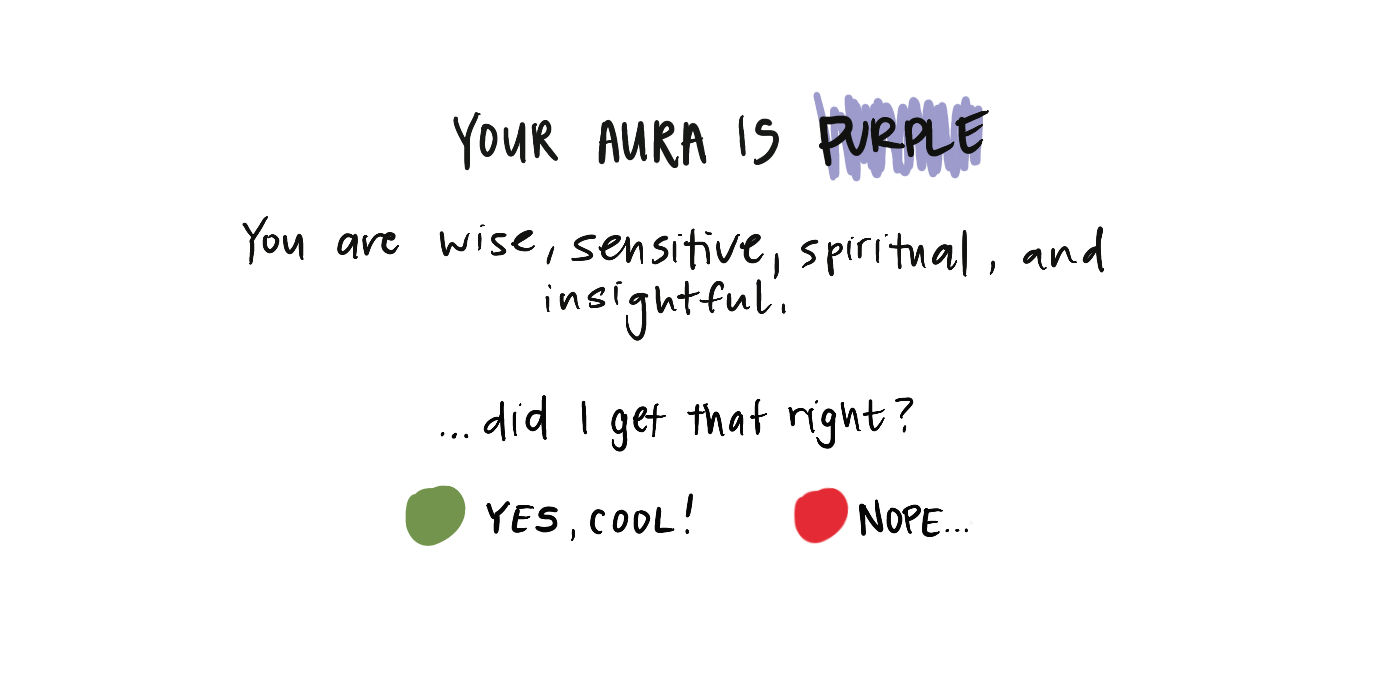 YOUR AURA IS PURPLE
You are wise, sensitive, spiritual, and
insightful.
...did I get that right?
YES, COOL! NOPE...